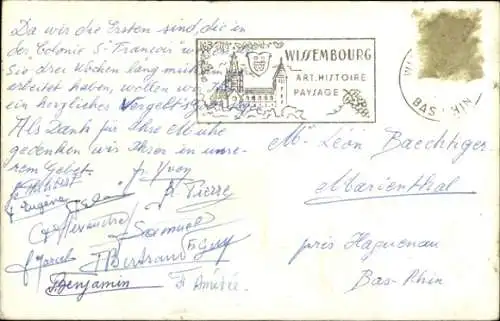 Da wir die Ersten sind, die in
der Colonie St Francois
Sie drei Wochen lang
arbeitet haben, wollen wir
ein herzliches Vergelt's
Als Dank für Ihre Mühe
gedenken wir Ihrer in unse-
rem Gebet. fr Yvon
fr Pierre
Eugène
Alexandre
Samuel
fr Marcel Bertrand fr Guy
fr Benjamin fr Amédée
WISSEMBOURG
ART. HISTOIRE
PAYSAGE
BAS-RHIN
Mr Léon Baechtiger
Marienthal
près Haguenau
Bas-Rhin